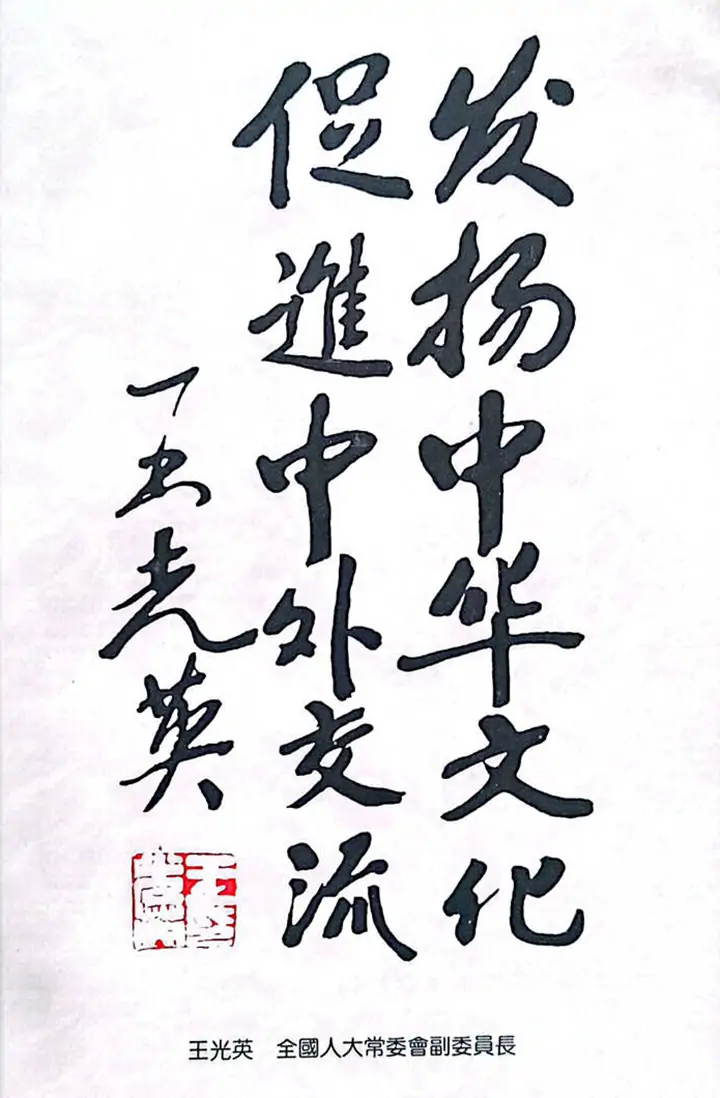 发扬中华文化
促進中外交流
王光英
王光英　全國人大常委會副委員長